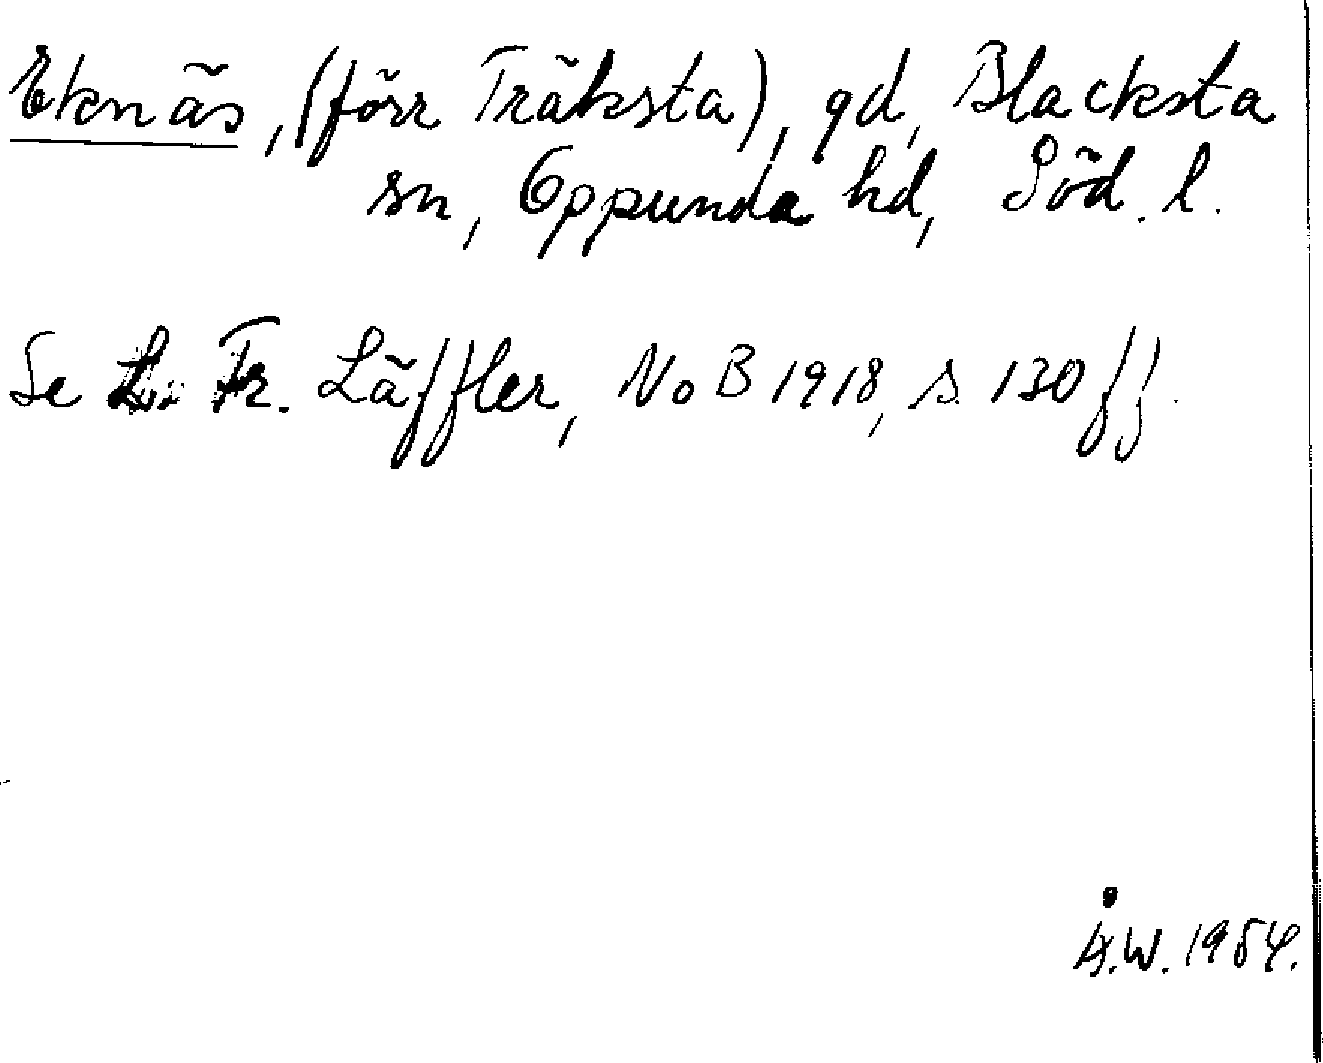 Eknäs, (förr Träksta), gd, Blacksta
sn, Oppunda hd, Söd. l.
Se L. Fr. Läffler, NoB 1918, s. 130 ff.
Å.W. 1954.